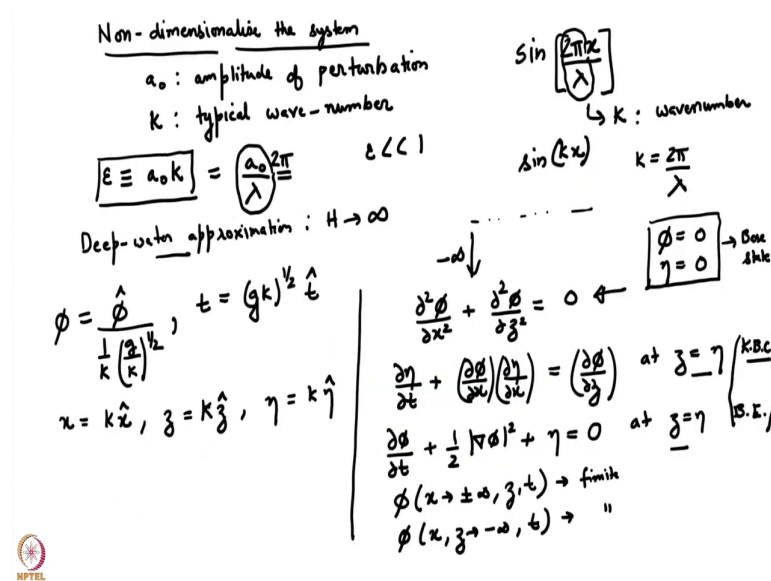 Non-dimensionalise the system
a₀ : amplitude of perturbation
K : typical wave-number
ε ≡ a₀k = a₀/λ 2π
ε << 1
Deep-water approximation : H → ∞
φ = φ̂ / (1/k (g/k)^1/2) , t = (gk)^1/2 t̂
x = kx̂, z = kẑ, η = kη̂
sin [2πx/λ]
↳ K : wavenumber
sin(kx) k = 2π/λ
-∞ ↓
φ = 0
η = 0
→ Base state
∂²φ/∂x² + ∂²φ/∂z² = 0 ←
∂η/∂t + (∂φ/∂x)(∂η/∂x) = (∂φ/∂z) at z = η (K.B.C
∂φ/∂t + 1/2 |∇φ|² + η = 0 at z = η (B.E.)
φ(x → ±∞, z, t) → finite
φ(x, z → -∞, t) → "
NPTEL